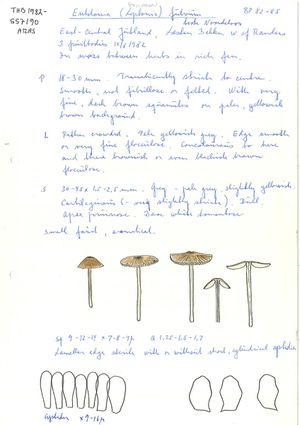 THB 1982-
557190
ATLAS
Entoloma (Leptonia) fulvum
BP 82-85
East-central Jutland, W of Randers
3 fruitbodies 1982
In moss between herbs in rich fen.
P 18-30 mm. Translucently striate to centre.
Smooth, not fibrillose or felted. With very
fine, dark brown squamules on pale, yellowish
brown background.
L Rather crowded. Pale yellowish grey. Edge smooth
or very fine flocculose. Concolorous or here
and there brownish or even blackish brown
flocculose.
S 30-45 x 1.5-2.5 mm. Grey - pale grey, slightly yellowish.
Cartilaginous (- very slightly striate). Dull.
Apex pruinose. Base white tomentose
Smell faint, aromatical.
Sp 9-12-14 x 7-8-9µ Q 1.25-1.5-1.7
Lamellar edge sterile with or without short, cylindrical cystidia
Cystidia x 9-16µ